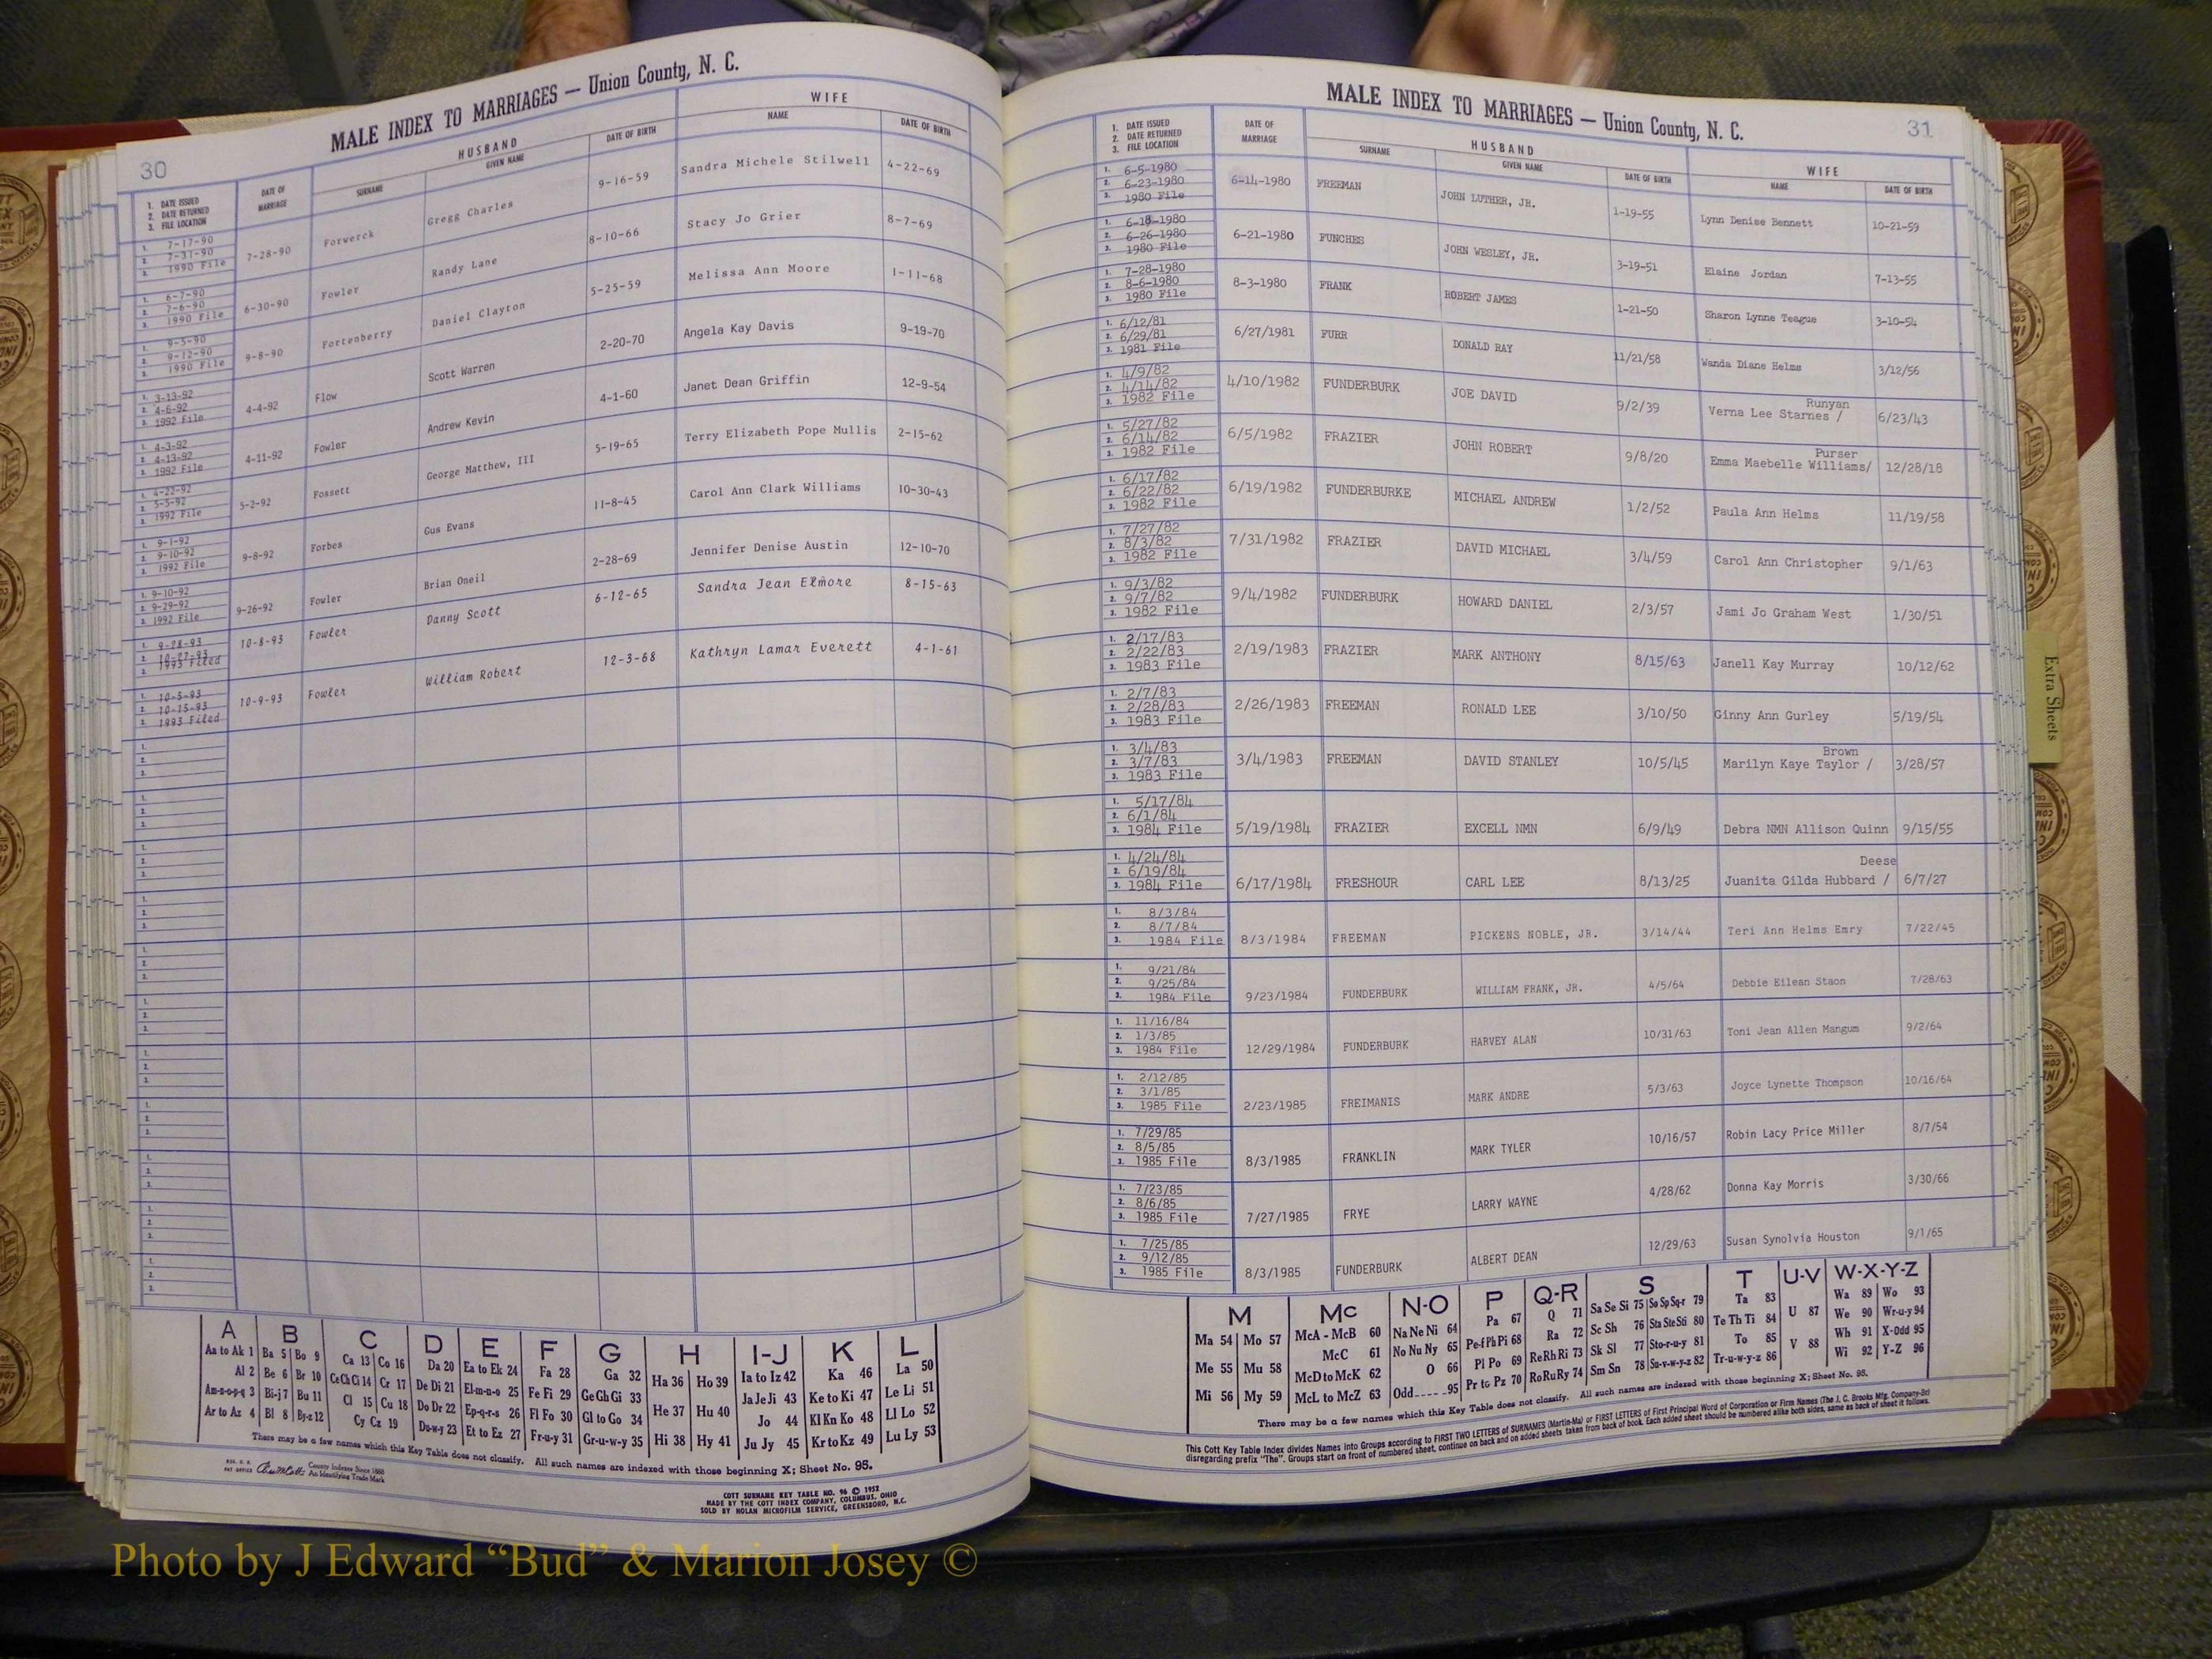 30
MALE INDEX TO MARRIAGES — Union County, N. C.
1. DATE ISSUED
2. DATE RETURNED
3. FILE LOCATION
DATE OF MARRIAGE
HUSBAND
SURNAME
GIVEN NAME
DATE OF BIRTH
WIFE
NAME
DATE OF BIRTH
1. 7-17-90
2. 7-31-90
3. 1990 File
7-28-90 Forwerck Gregg Charles 9-16-59 Sandra Michele Stilwell 4-22-69
1. 6-7-90
2. 7-6-90
3. 1990 File
6-30-90 Fowler Randy Lane 8-10-66 Stacy Jo Grier 8-7-69
1. 9-5-90
2. 9-12-90
3. 1990 File
9-8-90 Fortenberry Daniel Clayton 5-25-59 Melissa Ann Moore 1-11-68
1. 3-13-92
2. 4-6-92
3. 1992 File
4-4-92 Flow Scott Warren 2-20-70 Angela Kay Davis 9-19-70
1. 4-3-92
2. 4-13-92
3. 1992 File
4-11-92 Fowler Andrew Kevin 4-1-60 Janet Dean Griffin 12-9-54
1. 4-22-92
2. 5-5-92
3. 1992 File
5-2-92 Fossett George Matthew, III 5-19-65 Terry Elizabeth Pope Mullis 2-15-62
1. 9-1-92
2. 9-10-92
3. 1992 File
9-8-92 Forbes Gus Evans 11-8-45 Carol Ann Clark Williams 10-30-43
1. 9-10-92
2. 9-29-92
3. 1992 File
9-26-92 Fowler Brian Oneil 2-28-69 Jennifer Denise Austin 12-10-70
1. 9-28-93
2. 10-27-93
3. 1993 Filed
10-8-93 Fowler Danny Scott 6-12-65 Sandra Jean Elmore 8-15-63
1. 10-5-93
2. 10-15-93
3. 1993 Filed
10-9-93 Fowler William Robert 12-3-68 Kathryn Lamar Everett 4-1-61
A B C D E F G H I-J K L
Aa to Ak 1 Ba 5 Bo 9 Ca 13 Co 16 Da 20 Ea to Ek 24 Fa 28 Ga 32 Ha 36 Ho 39 Ia to Iz 42 Ka 46 La 50
Al 2 Be 6 Br 10 Ce Ch Ci 14 Cr 17 De Di 21 El-m-n-o 25 Fe Fi 29 Ge Gh Gi 33 He 37 Hu 40 Ja Je Ji 43 Ke to Ki 47 Le Li 51
Am-n-o-p-q 3 Bi-j 7 Bu 11 Cl 15 Cu 18 Do Dr 22 Ep-q-r-s 26 Fl Fo 30 Gl to Go 34 Hi 38 Hy 41 Jo 44 Kl Kn Ko 48 Ll Lo 52
Ar to Az 4 Bl 8 By-z 12 Cy Cz 19 Du-w-y 23 Et to Ez 27 Fr-u-y 31 Gr-u-w-y 35 Ju Jy 45 Kr to Kz 49 Lu Ly 53
There may be a few names which this Key Table does not classify. All such names are indexed with those beginning X; Sheet No. 95.
REG. U. S. PAT OFFICE
County Indexes Since 1888
An Identifying Trade Mark
COTT SURNAME KEY TABLE NO. 96 © 1952
MADE BY THE COTT INDEX COMPANY, COLUMBUS, OHIO
SOLD BY HOLAN MICROFILM SERVICE, GREENSBORO, N.C.
MALE INDEX TO MARRIAGES — Union County, N. C.
31
1. DATE ISSUED
2. DATE RETURNED
3. FILE LOCATION
DATE OF MARRIAGE
HUSBAND
SURNAME
GIVEN NAME
DATE OF BIRTH
WIFE
NAME
DATE OF BIRTH
1. 6-5-1980
2. 6-23-1980
3. 1980 File
6-14-1980 FREEMAN JOHN LUTHER, JR. 1-19-55 Lynn Denise Bennett 10-21-59
1. 6-18-1980
2. 6-26-1980
3. 1980 File
6-21-1980 FUNCHES JOHN WESLEY, JR. 3-19-51 Elaine Jordan 7-13-55
1. 7-28-1980
2. 8-6-1980
3. 1980 File
8-3-1980 FRANK ROBERT JAMES 1-21-50 Sharon Lynne Teague 3-10-54
1. 6/12/81
2. 6/29/81
3. 1981 File
6/27/1981 FURR DONALD RAY 11/21/58 Wanda Diane Helms 3/12/56
1. 4/9/82
2. 4/14/82
3. 1982 File
4/10/1982 FUNDERBURK JOE DAVID 9/2/39 Verna Lee Starnes / Runyan 6/23/43
1. 5/27/82
2. 6/14/82
3. 1982 File
6/5/1982 FRAZIER JOHN ROBERT 9/8/20 Emma Maebelle Williams/ Purser 12/28/18
1. 6/17/82
2. 6/22/82
3. 1982 File
6/19/1982 FUNDERBURKE MICHAEL ANDREW 1/2/52 Paula Ann Helms 11/19/58
1. 7/27/82
2. 8/3/82
3. 1982 File
7/31/1982 FRAZIER DAVID MICHAEL 3/4/59 Carol Ann Christopher 9/1/63
1. 9/3/82
2. 9/7/82
3. 1982 File
9/4/1982 FUNDERBURK HOWARD DANIEL 2/3/57 Jami Jo Graham West 1/30/51
1. 2/17/83
2. 2/22/83
3. 1983 File
2/19/1983 FRAZIER MARK ANTHONY 8/15/63 Janell Kay Murray 10/12/62
1. 2/7/83
2. 2/28/83
3. 1983 File
2/26/1983 FREEMAN RONALD LEE 3/10/50 Ginny Ann Gurley 5/19/54
1. 3/4/83
2. 3/7/83
3. 1983 File
3/4/1983 FREEMAN DAVID STANLEY 10/5/45 Marilyn Kaye Taylor / Brown 3/28/57
1. 5/17/84
2. 6/1/84
3. 1984 File
5/19/1984 FRAZIER EXCELL NMN 6/9/49 Debra NMN Allison Quinn 9/15/55
1. 4/24/84
2. 6/19/84
3. 1984 File
6/17/1984 FRESHOUR CARL LEE 8/13/25 Juanita Gilda Hubbard / Deese 6/7/27
1. 8/3/84
2. 8/7/84
3. 1984 File
8/3/1984 FREEMAN PICKENS NOBLE, JR. 3/14/44 Teri Ann Helms Emry 7/22/45
1. 9/21/84
2. 9/25/84
3. 1984 File
9/23/1984 FUNDERBURK WILLIAM FRANK, JR. 4/5/64 Debbie Eilean Staon 7/28/63
1. 11/16/84
2. 1/3/85
3. 1984 File
12/29/1984 FUNDERBURK HARVEY ALAN 10/31/63 Toni Jean Allen Mangum 9/2/64
1. 2/12/85
2. 3/1/85
3. 1985 File
2/23/1985 FREIMANIS MARK ANDRE 5/3/63 Joyce Lynette Thompson 10/16/64
1. 7/29/85
2. 8/5/85
3. 1985 File
8/3/1985 FRANKLIN MARK TYLER 10/16/57 Robin Lacy Price Miller 8/7/54
1. 7/23/85
2. 8/6/85
3. 1985 File
7/27/1985 FRYE LARRY WAYNE 4/28/62 Donna Kay Morris 3/30/66
1. 7/25/85
2. 9/12/85
3. 1985 File
8/3/1985 FUNDERBURK ALBERT DEAN 12/29/63 Susan Synolvia Houston 9/1/65
M Mc N-O P Q-R S T U-V W-X-Y-Z
Ma 54 Mo 57 McA - McB 60 Na Ne Ni 64 Pa 67 Q 71 Sa Se Si 75 So Sp Sq-r 79 Ta 83 U 87 Wa 89 Wo 93
Me 55 Mu 58 McC 61 No Nu Ny 65 Pe-f Ph Pi 68 Ra 72 Sc Sh 76 Sta Ste Sti 80 Te Th Ti 84 V 88 We 90 Wr-u-y 94
Mi 56 My 59 McD to McK 62 O 66 Pl Po 69 Re Rh Ri 73 Sk Sl 77 Sto-r-u-y 81 To 85 Wh 91 X-Odd 95
McL to McZ 63 Odd 95 Pr to Pz 70 Ro Ru Ry 74 Sm Sn 78 Su-v-w-y-z 82 Tr-u-w-y-z 86 Wi 92 Y-Z 96
There may be a few names which this Key Table does not classify. All such names are indexed with those beginning X; Sheet No. 95.
This Cott Key Table Index divides Names into Groups according to FIRST TWO LETTERS of SURNAMES (Martin-Ma) or FIRST LETTERS of First Principal Word of Corporation or Firm Names (The J. C. Brooks Mfg. Company-Br)
disregarding prefix "The". Groups start on front of numbered sheet, continue on back and on added sheets taken from back of book. Each added sheet should be numbered alike both sides, same as back of sheet it follows.
Extra Sheets
Photo by J Edward “Bud” & Marion Josey ©